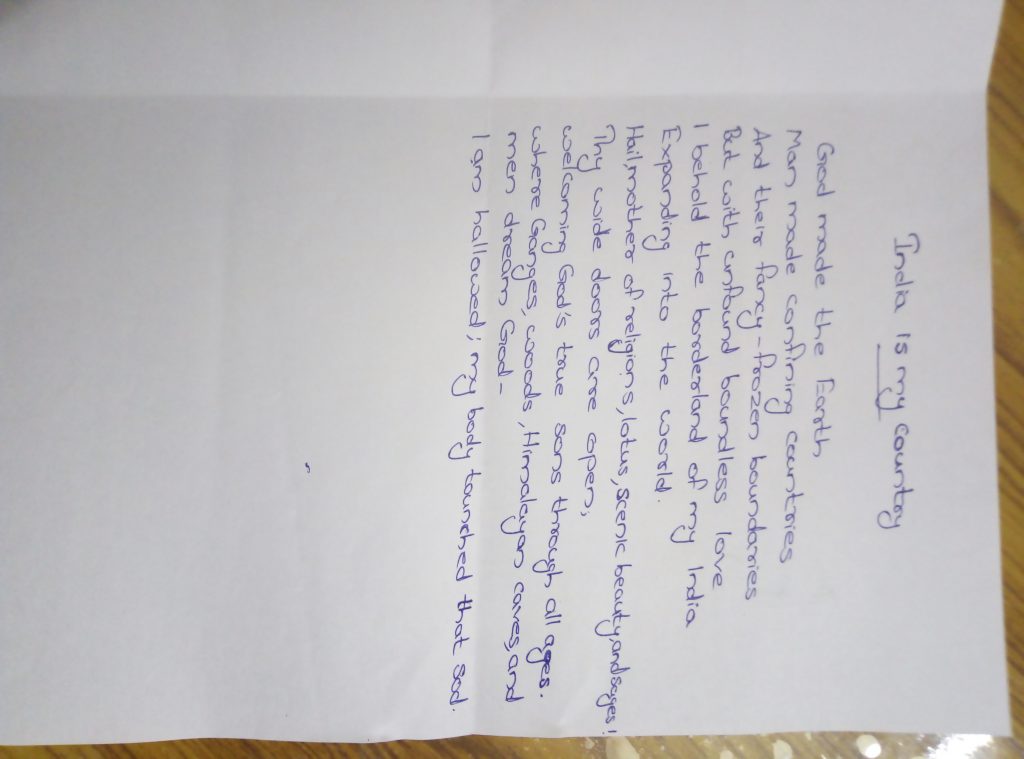 India is my country
God made the Earth
Man made confining countries
And their fancy-frozen boundaries
But with unfound boundless love
I behold the borderland of my India
Expanding into the world.
Hail, mother of religions, lotus, scenic beauty, and sages!
Thy wide doors are open,
welcoming God's true sons through all ages.
where Ganges, woods, Himalayan caves, and
men dream God-
I am hallowed; my body tounched that sod.